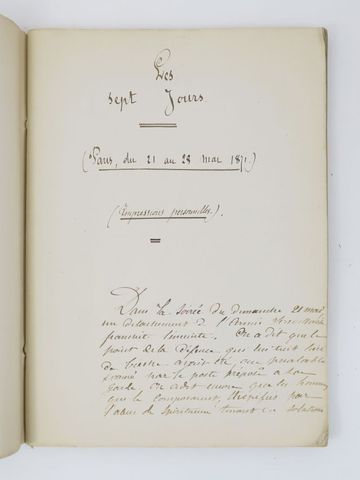 Les
sept Jours
(Paris, du 21 au 28 mai 1871.)
(Impressions personnelles).
Dans la soirée du dimanche 21 mai
un détachement de l'Armée
franchit l'enceinte. On a dit que le
point de la défense qui lui
de avait été, au préalable
par le poste préposé à sa
garde, on a dit encore que les hommes
qui le composaient, par
l'abus de spiritueux